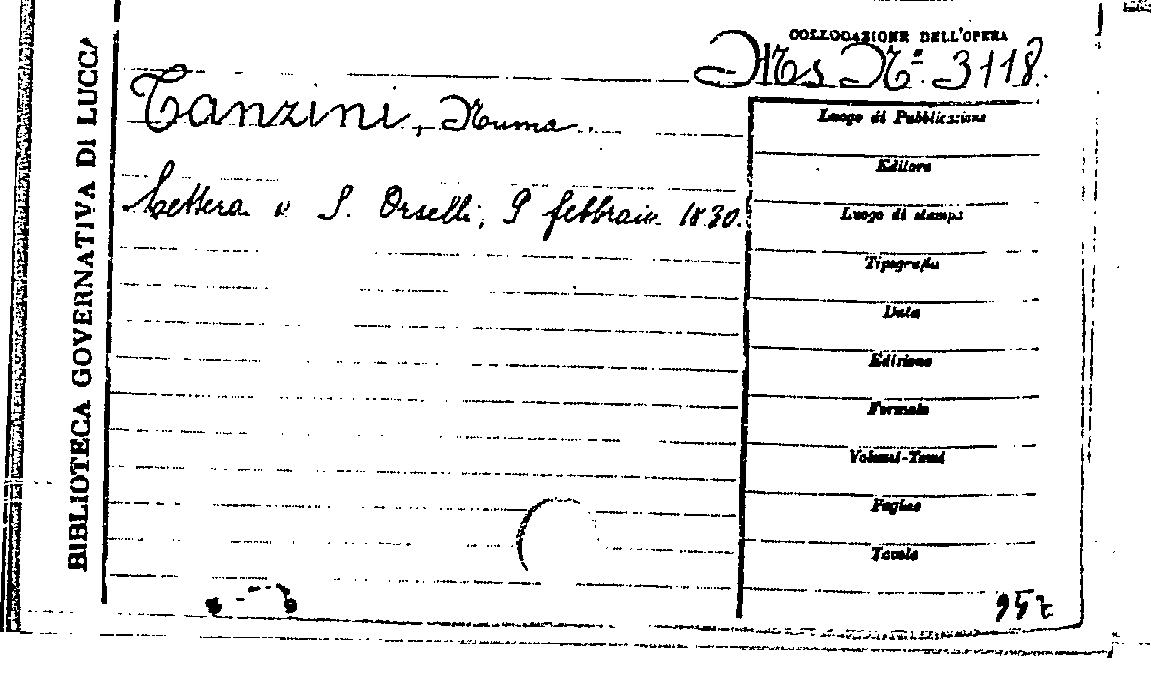 BIBLIOTECA GOVERNATIVA DI LUCCA
COLLOCAZIONE DELL'OPERA
Ms Nº 3118.
Tanzini, Numa.
Lettera a S. Orselli, 9 febbraio 1830.
Luogo di Pubblicazione
Editore
Luogo di stampa
Tipografia
Data
Edizione
Formato
Volumi-Tomi
Pagine
Tavole